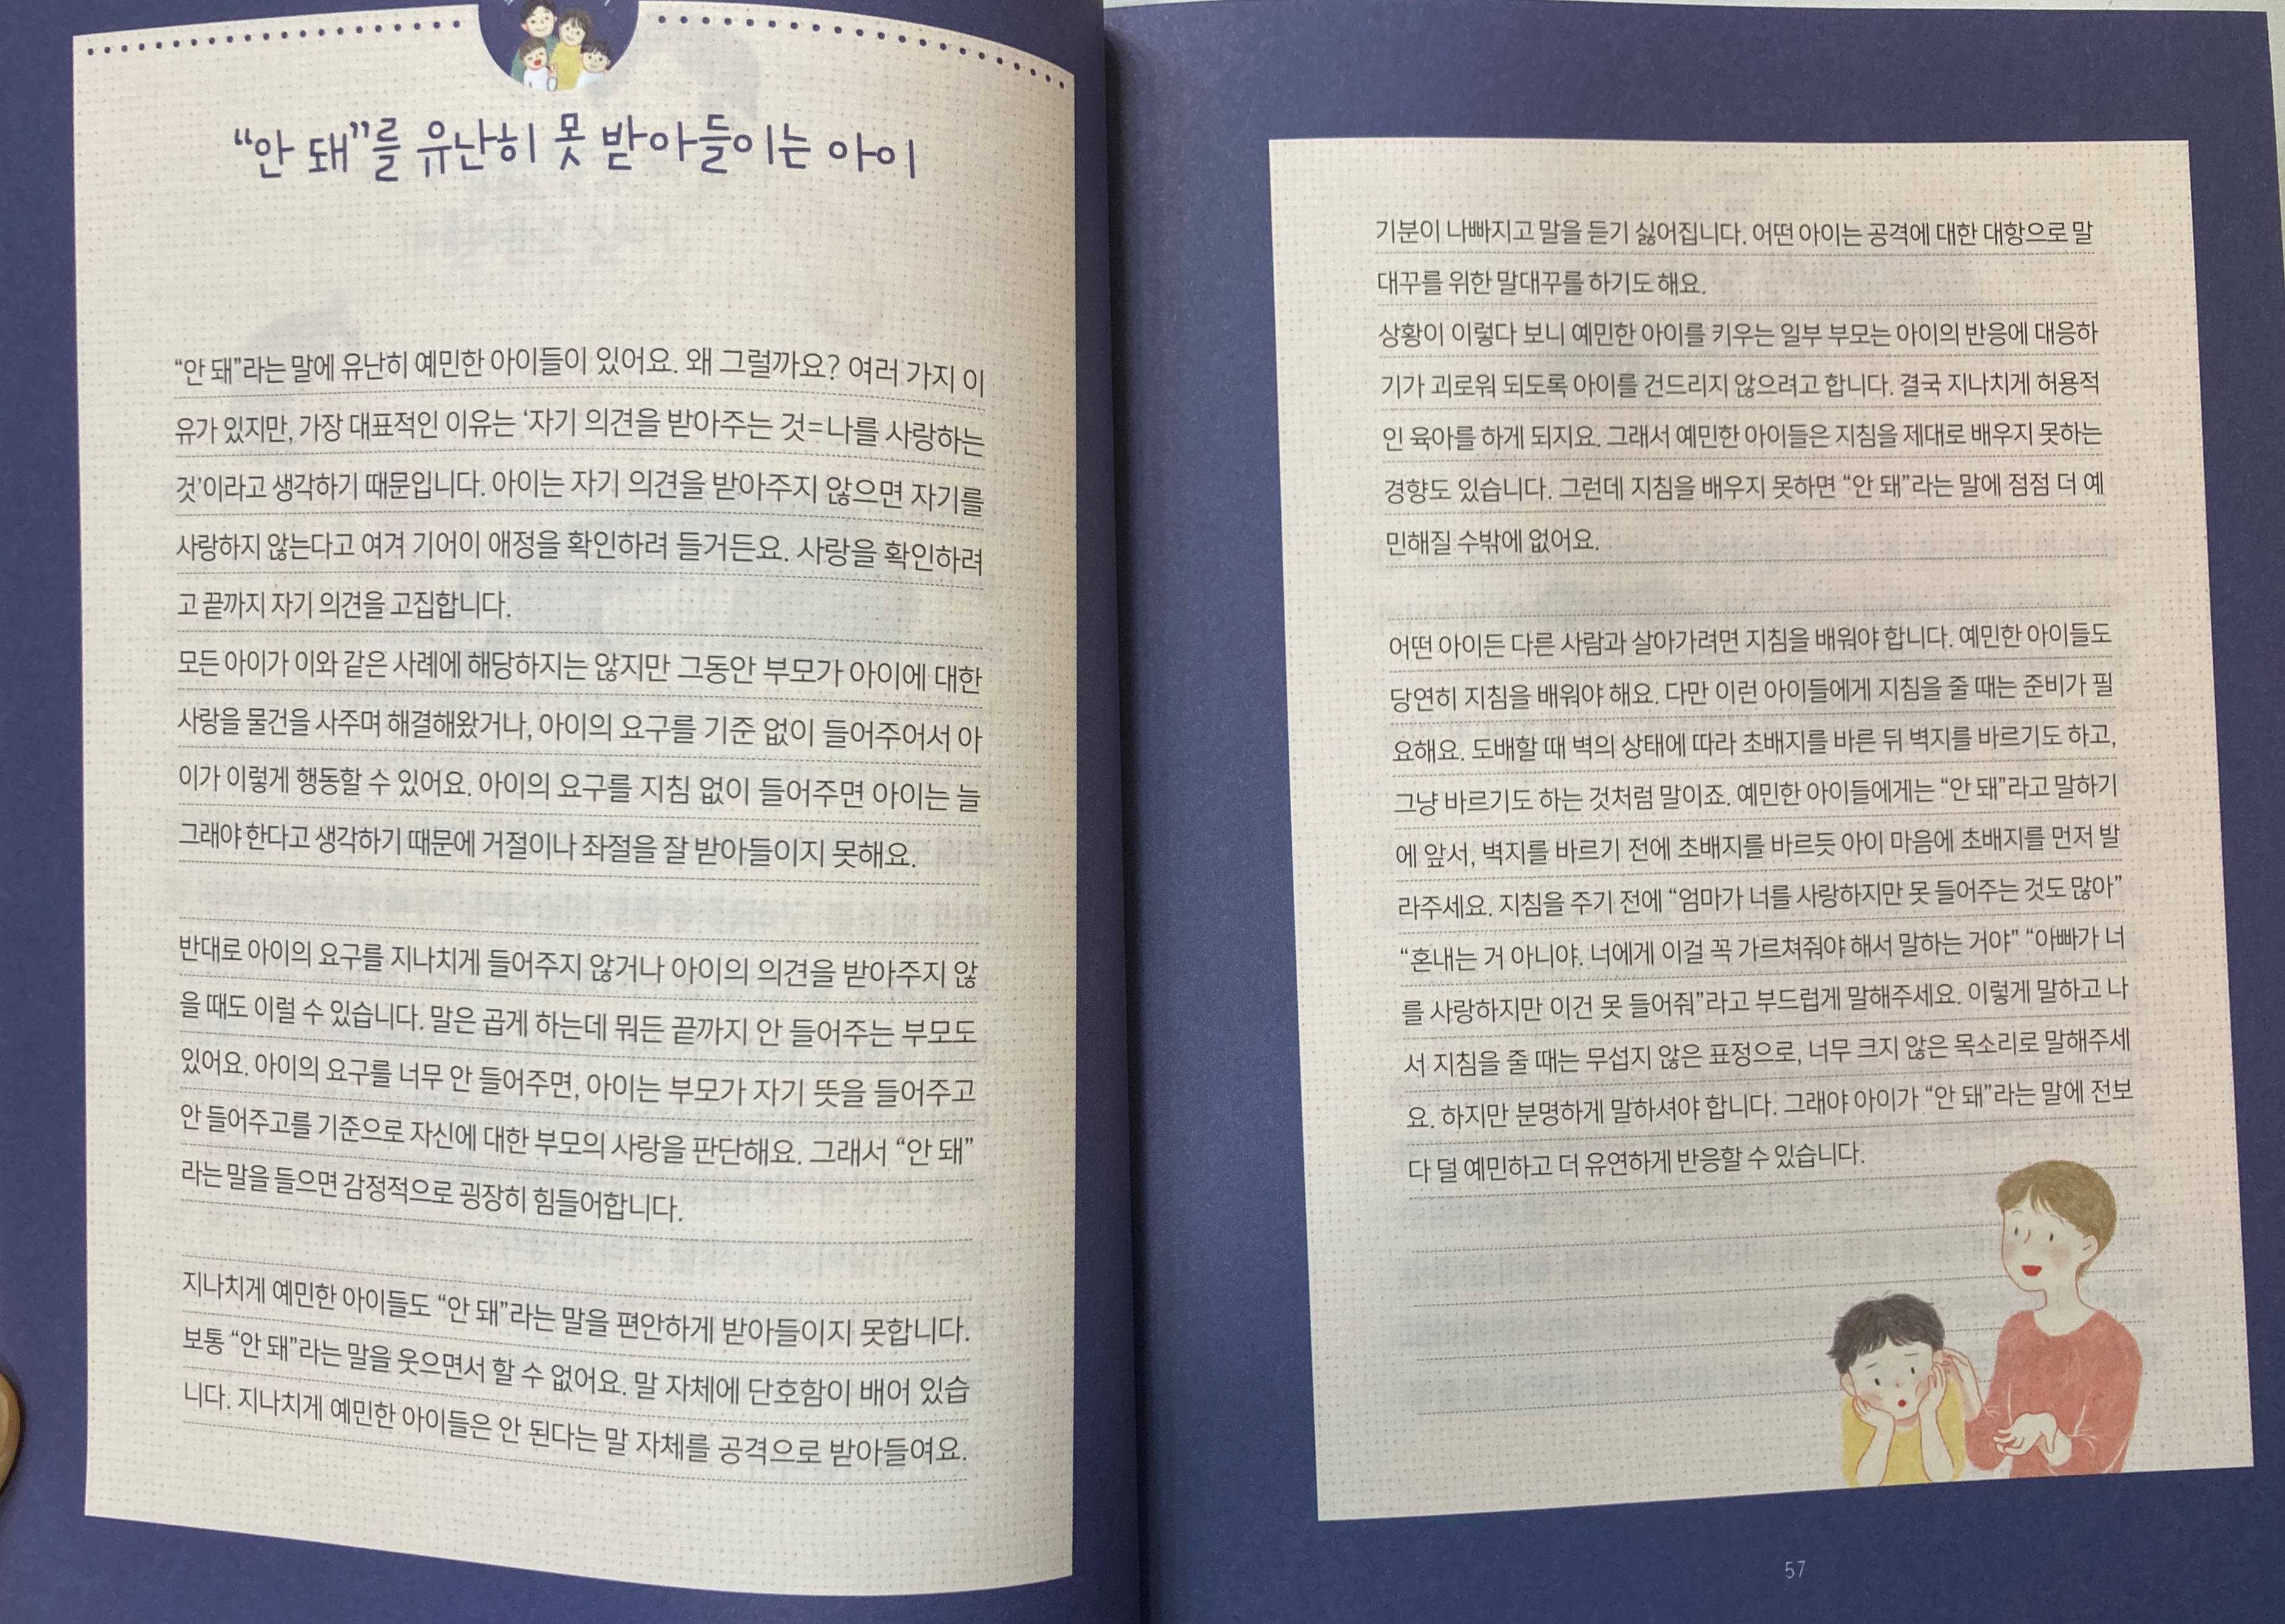 “안 돼”를 유난히 못 받아들이는 아이
“안 돼”라는 말에 유난히 예민한 아이들이 있어요. 왜 그럴까요? 여러 가지 이
유가 있지만, 가장 대표적인 이유는 ‘자기 의견을 받아주는 것=나를 사랑하는
것’이라고 생각하기 때문입니다. 아이는 자기 의견을 받아주지 않으면 자기를
사랑하지 않는다고 여겨 기어이 애정을 확인하려 들거든요. 사랑을 확인하려
고 끝까지 자기 의견을 고집합니다.
모든 아이가 이와 같은 사례에 해당하지는 않지만 그동안 부모가 아이에 대한
사랑을 물건을 사주며 해결해왔거나, 아이의 요구를 기준 없이 들어주어서 아
이가 이렇게 행동할 수 있어요. 아이의 요구를 지침 없이 들어주면 아이는 늘
그래야 한다고 생각하기 때문에 거절이나 좌절을 잘 받아들이지 못해요.
반대로 아이의 요구를 지나치게 들어주지 않거나 아이의 의견을 받아주지 않
을 때도 이럴 수 있습니다. 말은 곱게 하는데 뭐든 끝까지 안 들어주는 부모도
있어요. 아이의 요구를 너무 안 들어주면, 아이는 부모가 자기 뜻을 들어주고
안 들어주고를 기준으로 자신에 대한 부모의 사랑을 판단해요. 그래서 “안 돼”
라는 말을 들으면 감정적으로 굉장히 힘들어합니다.
지나치게 예민한 아이들도 “안 돼”라는 말을 편안하게 받아들이지 못합니다.
보통 “안 돼”라는 말을 웃으면서 할 수 없어요. 말 자체에 단호함이 배어 있습
니다. 지나치게 예민한 아이들은 안 된다는 말 자체를 공격으로 받아들여요.
기분이 나빠지고 말을 듣기 싫어집니다. 어떤 아이는 공격에 대한 대항으로 말
대꾸를 위한 말대꾸를 하기도 해요.
상황이 이렇다 보니 예민한 아이를 키우는 일부 부모는 아이의 반응에 대응하
기가 괴로워 되도록 아이를 건드리지 않으려고 합니다. 결국 지나치게 허용적
인 육아를 하게 되지요. 그래서 예민한 아이들은 지침을 제대로 배우지 못하는
경향도 있습니다. 그런데 지침을 배우지 못하면 “안 돼”라는 말에 점점 더 예
민해질 수밖에 없어요.
어떤 아이든 다른 사람과 살아가려면 지침을 배워야 합니다. 예민한 아이들도
당연히 지침을 배워야 해요. 다만 이런 아이들에게 지침을 줄 때는 준비가 필
요해요. 도배할 때 벽의 상태에 따라 초배지를 바른 뒤 벽지를 바르기도 하고,
그냥 바르기도 하는 것처럼 말이죠. 예민한 아이들에게는 “안 돼”라고 말하기
에 앞서, 벽지를 바르기 전에 초배지를 바르듯 아이 마음에 초배지를 먼저 발
라주세요. 지침을 주기 전에 “엄마가 너를 사랑하지만 못 들어주는 것도 많아”
“혼내는 거 아니야. 너에게 이걸 꼭 가르쳐줘야 해서 말하는 거야” “아빠가 너
를 사랑하지만 이건 못 들어줘”라고 부드럽게 말해주세요. 이렇게 말하고 나
서 지침을 줄 때는 무섭지 않은 표정으로, 너무 크지 않은 목소리로 말해주세
요. 하지만 분명하게 말하셔야 합니다. 그래야 아이가 “안 돼”라는 말에 전보
다 덜 예민하고 더 유연하게 반응할 수 있습니다.
57